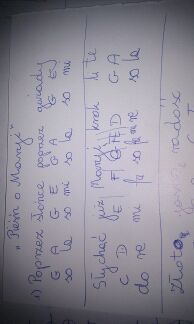 „Pieśń o Maryi"
1) Poprzez słońce poprzez gwiazdy
G A G E G A G E
so la so mi so la so mi
Słychać już Maryi krok i te
C D E F D G A
do re mi fa so re so la
Złotą jasną radość